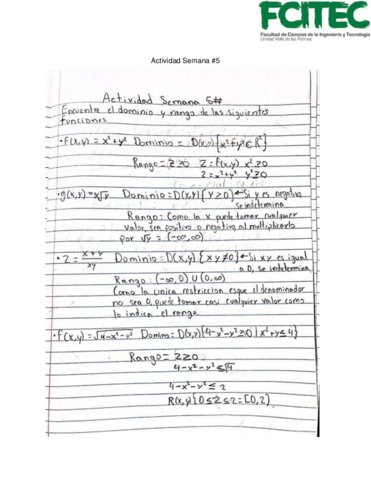 FCITEC
Facultad de Ciencias de la Ingeniería y Tecnología
Unidad Valle de las Palmas
Actividad Semana #5
Actividad Semana 5#
Encuentre el dominio y rango de las siguientes
funciones
• F(x,y) = x²+y² Dominio = D(x,y){x²+y² ∈ R²}
Rango = z≥0 z = f(x,y) x²≥0
z = x²+y² y²≥0
• g(x,y) = x√y Dominio = D(x,y){y≥0} Si y es negativa
Se indetermina
Rango: Como la x puede tomar cualquier
valor, sea positivo o negativo al multiplicarlo
por √y = (-∞,∞)
• z = x+y/xy Dominio = D(x,y){xy≠0} Si xy es igual
a 0, Se indetermina
Rango: (-∞,0) U (0,∞)
Como la unica restriccion es que el denominador
no sea 0, puede tomar casi cualquier valor como
lo indica el rango.
• f(x,y) = √4-x²-y² Domino = D(x,y){4-x²-y²≥0 | x²+y≤4}
Rango = z≥0
4-x²-y² ≤√4
4-x²-y² ≤ 2
R(x,y){0≤z≤2 = [0,2)